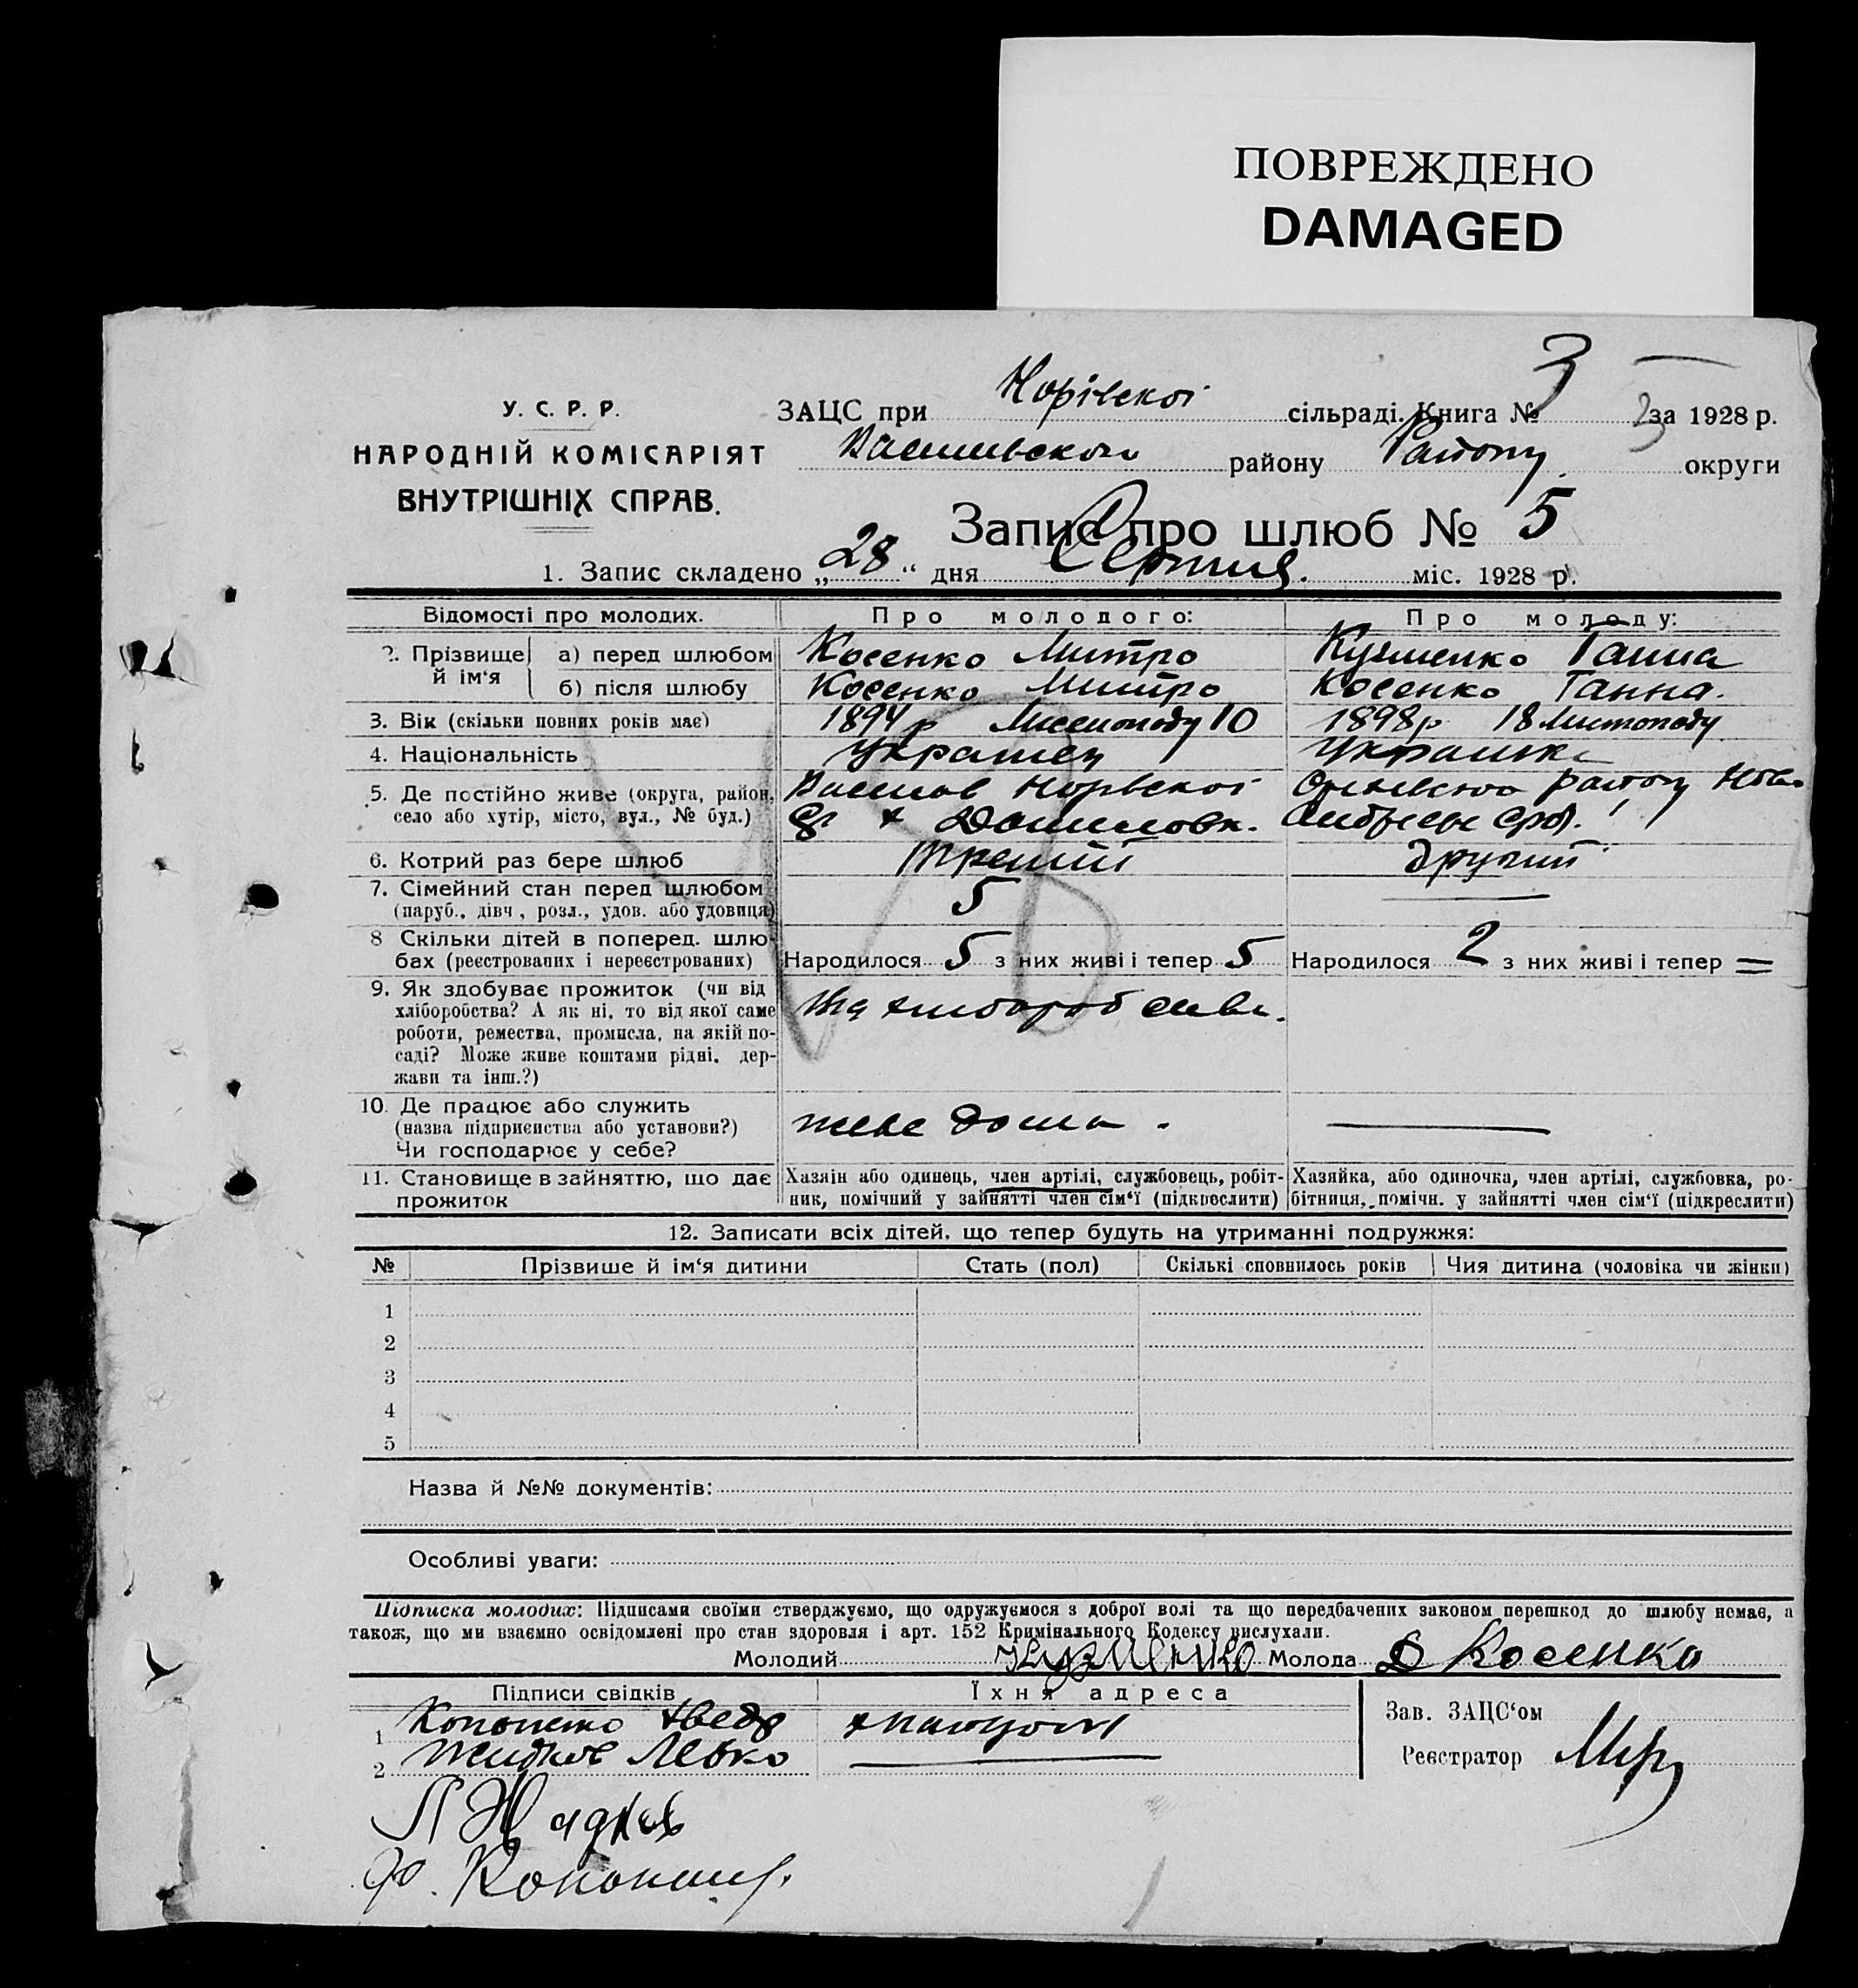 ПОВРЕЖДЕНО
DAMAGED
У. С. Р. Р.
НАРОДНІЙ КОМІСАРІЯТ
ВНУТРІШНІХ СПРАВ.
ЗАЦС при Норівскої сільраді. Книга № 3 за 1928 р.
району Району округи
Запис про шлюб № 5
1. Запис складено „28“ дня Серпня. міс. 1928 р.
Відомості про молодих. Про молодого: Про молоду:
2. Прізвище й ім‘я а) перед шлюбом Косенко Митро Кузменко Ганна
б) після шлюбу Косенко Митро Косенко Ганна.
3. Вік (скільки повних років має) 1894 р Листопаду 10 1898 р 18 Листопаду
4. Національність Украінец Украінка
5. Де постійно живе (округа, район, село або хутір, місто, вул., № буд.) району
6. Котрий раз бере шлюб третій другий
7. Сімейний стан перед шлюбом (паруб., дівч, розл., удов. або удовиця) 5 —
8 Скільки дітей в поперед. шлюбах (реєстрованих і нереєстрованих) Народилося 5 з них живі і тепер 5 Народилося 2 з них живі і тепер =
9. Як здобуває прожиток (чи від
хліборобства? А як ні, то від якої саме
роботи, ремества, промисла, на якій по-
саді? Може живе коштами рідні, дер-
жави та інш.?)
10. Де працює або служить
(назва підприємства або установи?)
Чи господарює у себе? живе дома. —
11. Становище в зайняттю, що дає прожиток
Хазяін або одинець, член артілі, службовець, робіт-
ник, помічний у зайнятті член сім‘ї (підкреслити)
Хазяйка, або одиночка, член артілі, службовка, ро-
бітниця, помічн. у зайнятті член сім‘ї (підкреслити)
12. Записати всіх дітей, що тепер будуть на утриманні подружжя:
№ Прізвише й ім‘я дитини Стать (пол) Скількі сповнилось років Чия дитина (чоловіка чи жінки)
1
2
3
4
5
Назва й №№ документів:
Особливі уваги:
Підписка молодих: Підписами своїми стверджуємо, що одружуємося з доброї волі та що передбачених законом перешкод до шлюбу немає, а
також, що ми взаємно освідомлені про стан здоровля і арт. 152 Кримінального Кодексу вислухали.
Молодий Кузменко Молода Д Косенко
Підписи свідків Їхня адреса
1
2 Левко
Зав. ЗАЦС‘ом
Реєстратор